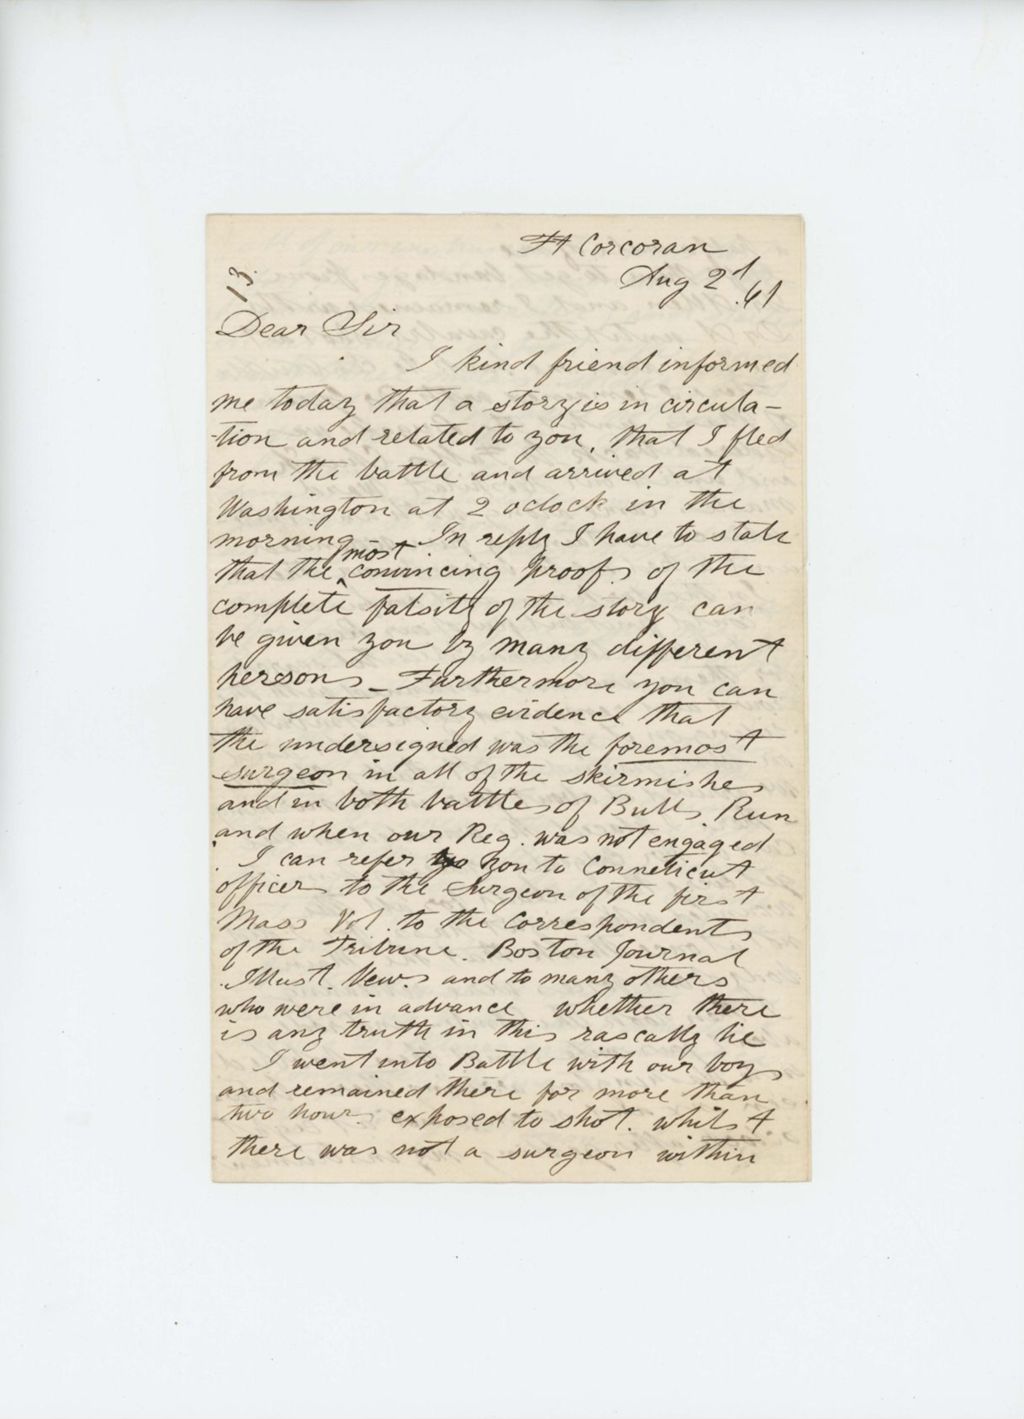 Ft Corcoran
Aug 2d .61
13.
Dear Sir
I kind friend informed
me today that a story is in circula-
tion and related to you, that I fled
from the battle and arrived at
Washington at 2 oclock in the
morning - In reply I have to state
that the most convincing proofs of the
complete falsity of the story can
be given you by many different
persons - Furthermore you can
have satisfactory evidence that
the undersigned was the foremost
surgeon in all of the skirmishes
and in both battles of Bulls Run
and when our Reg. was not engaged
I can refer you to Conneticut
officers to the surgeon of the first
Mass Vol. to the Correspondents
of the Tribune. Boston Journal
Illust. News and to many others
who were in advance whether there
is any truth in this rascally lie
I went into Battle with our boys
and remained there for more than
two hours exposed to shot. whilst
there was not a surgeon within